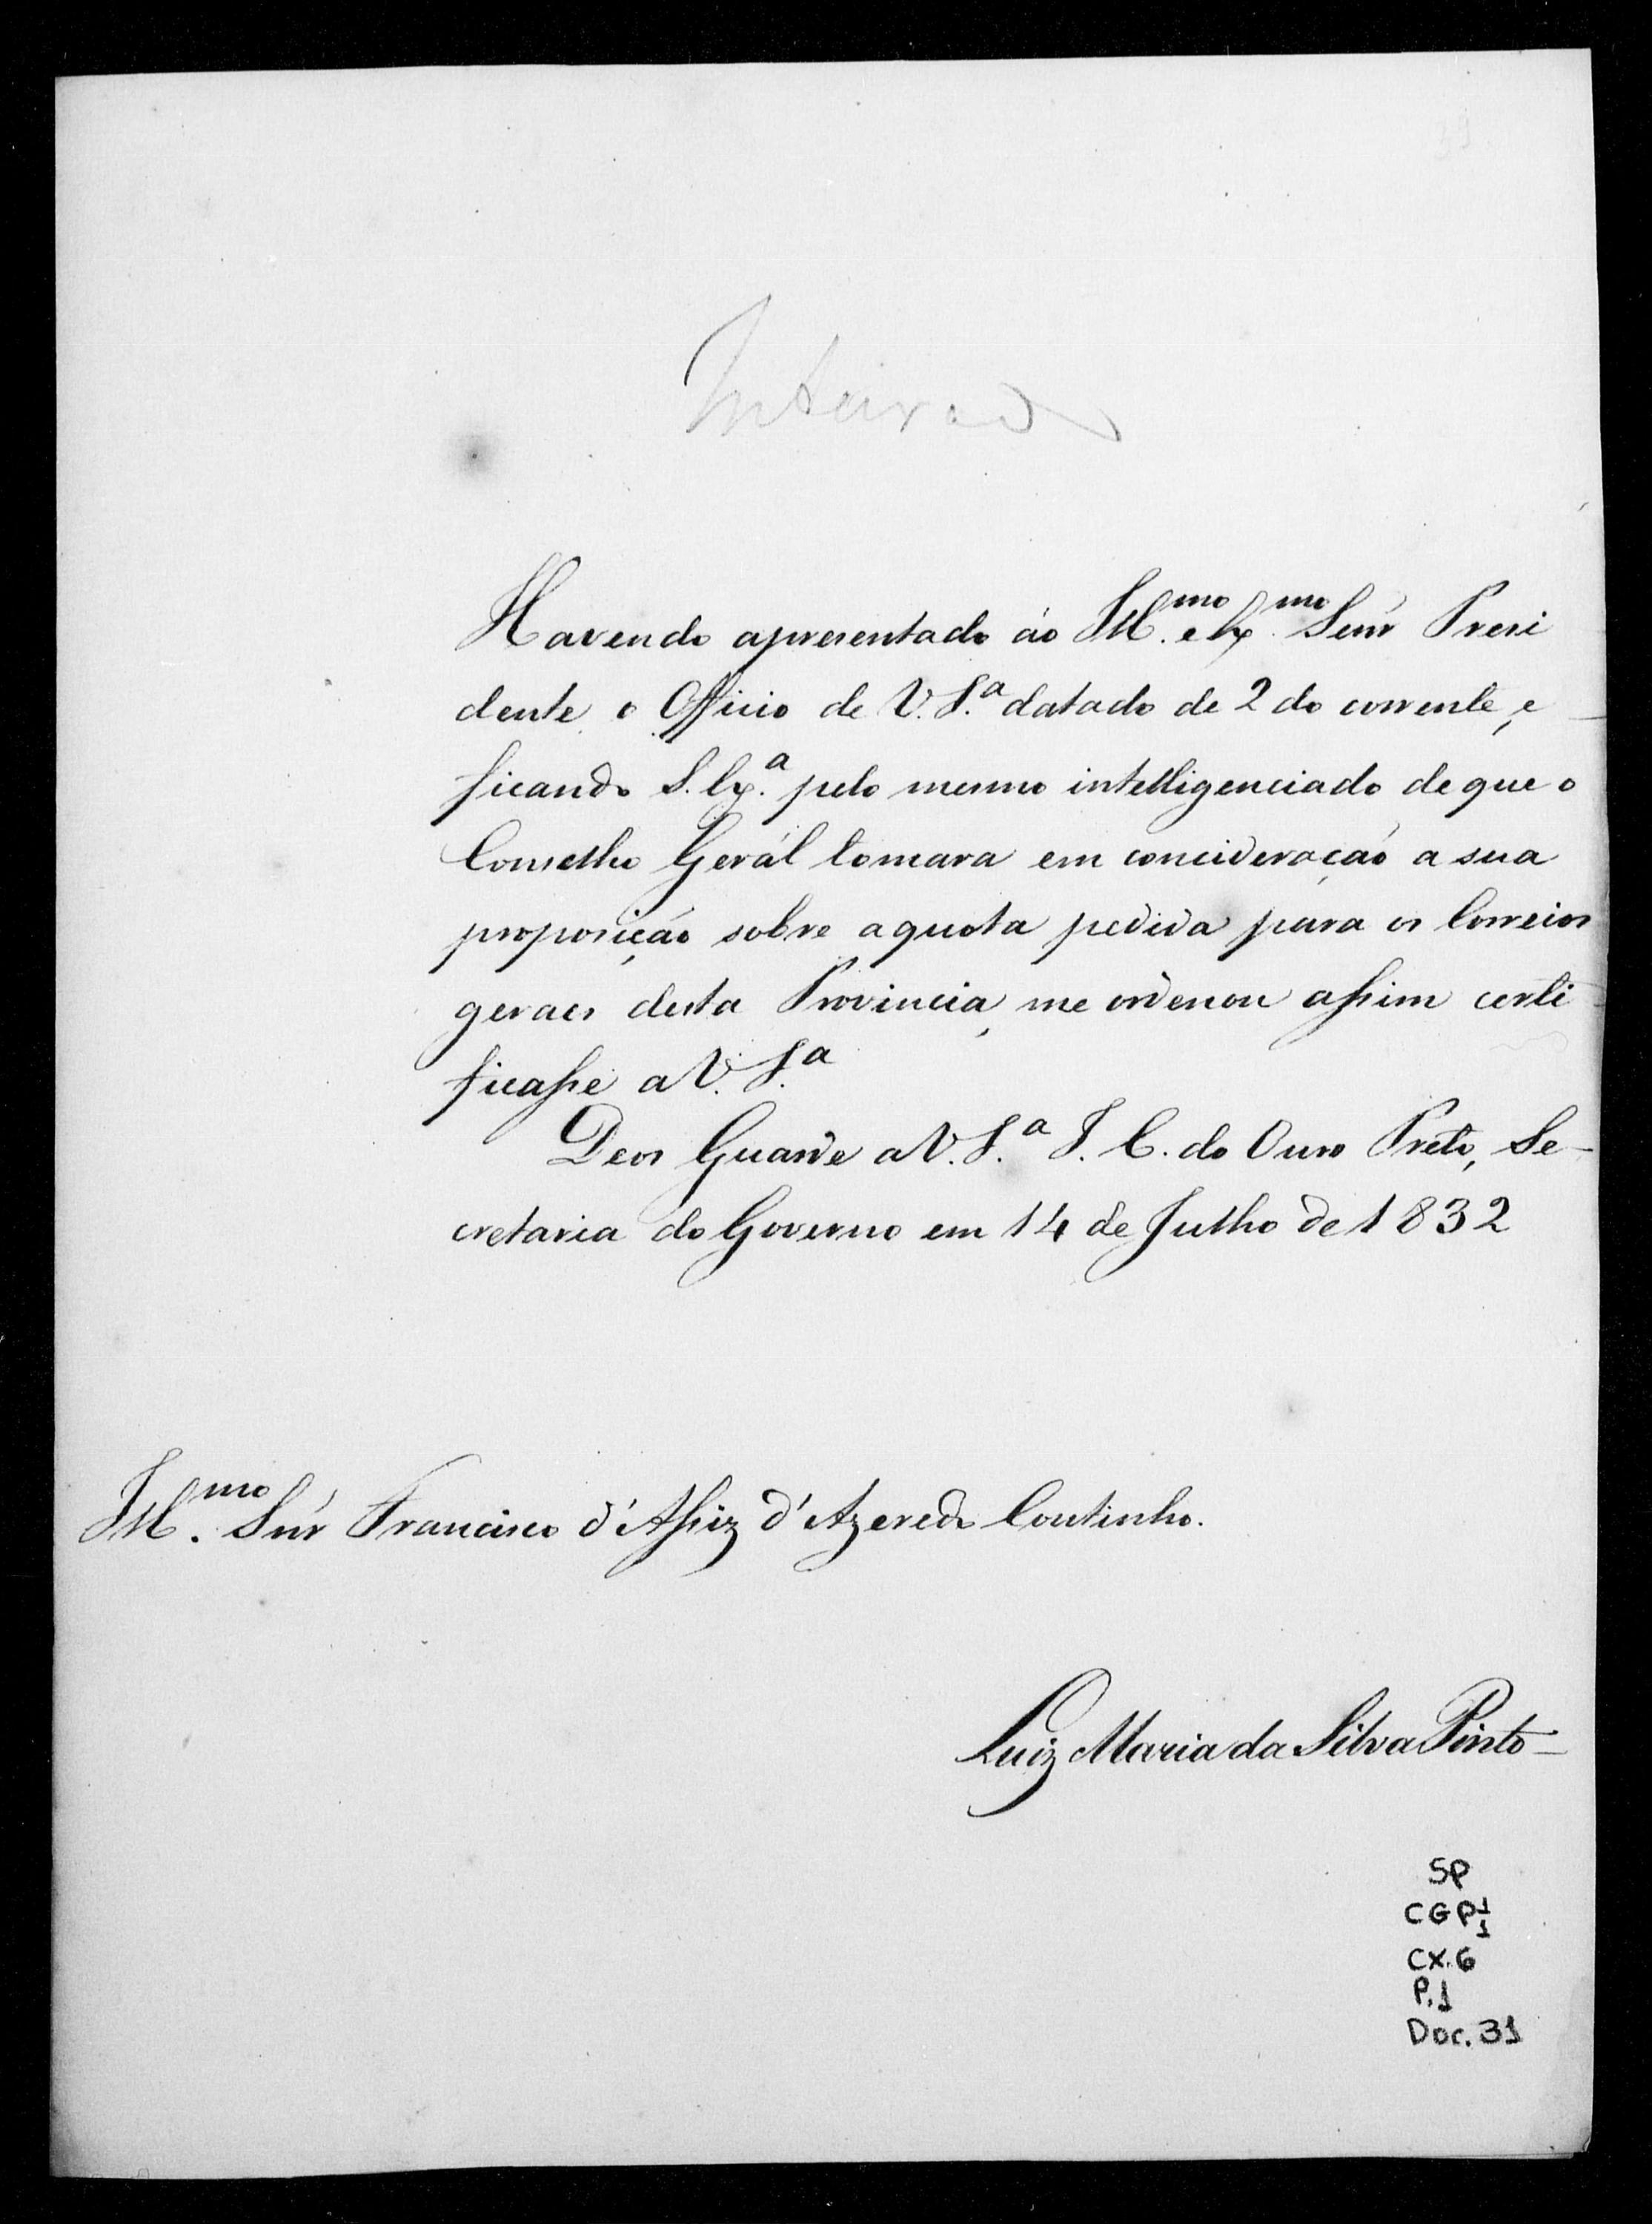 Inteirado
Havendo apresentado áo Ill.mo e Ex.mo Senr Presi
dente o Officio de V. S.a datado de 2 do corrente, e
ficando S. Ex.a pelo mesmo intelligenciado de que o
Conselho Gerál tomara em concideração a sua
proposição sobre a quota pedida para os Correios
geraes desta Provincia, me ordenou assim certi
ficasse a V. S.a
Deos Guarde a V. S.a I. C. do Ouro Preto, Se-
cretaria do Governo em 14 de Julho de 1832
Ill.mo Snr Francisco d'Assiz d'Azeredo Coutinho.
Luiz Maria da Silva Pinto
SP
CGP 1/1
CX.6
P.1
Doc. 31